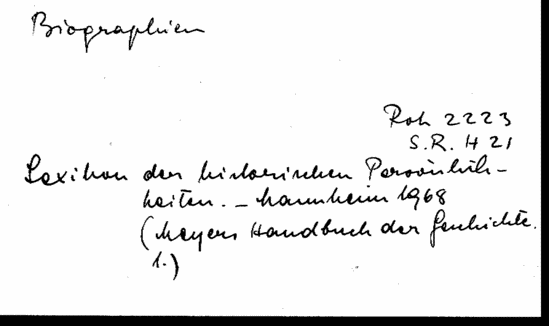 Biographien
Roh 2223
S.R. H 21
Lexikon der historischen Persönlich-
keiten. - Mannheim 1968
(Meyers Handbuch der Geschichte.
1.)